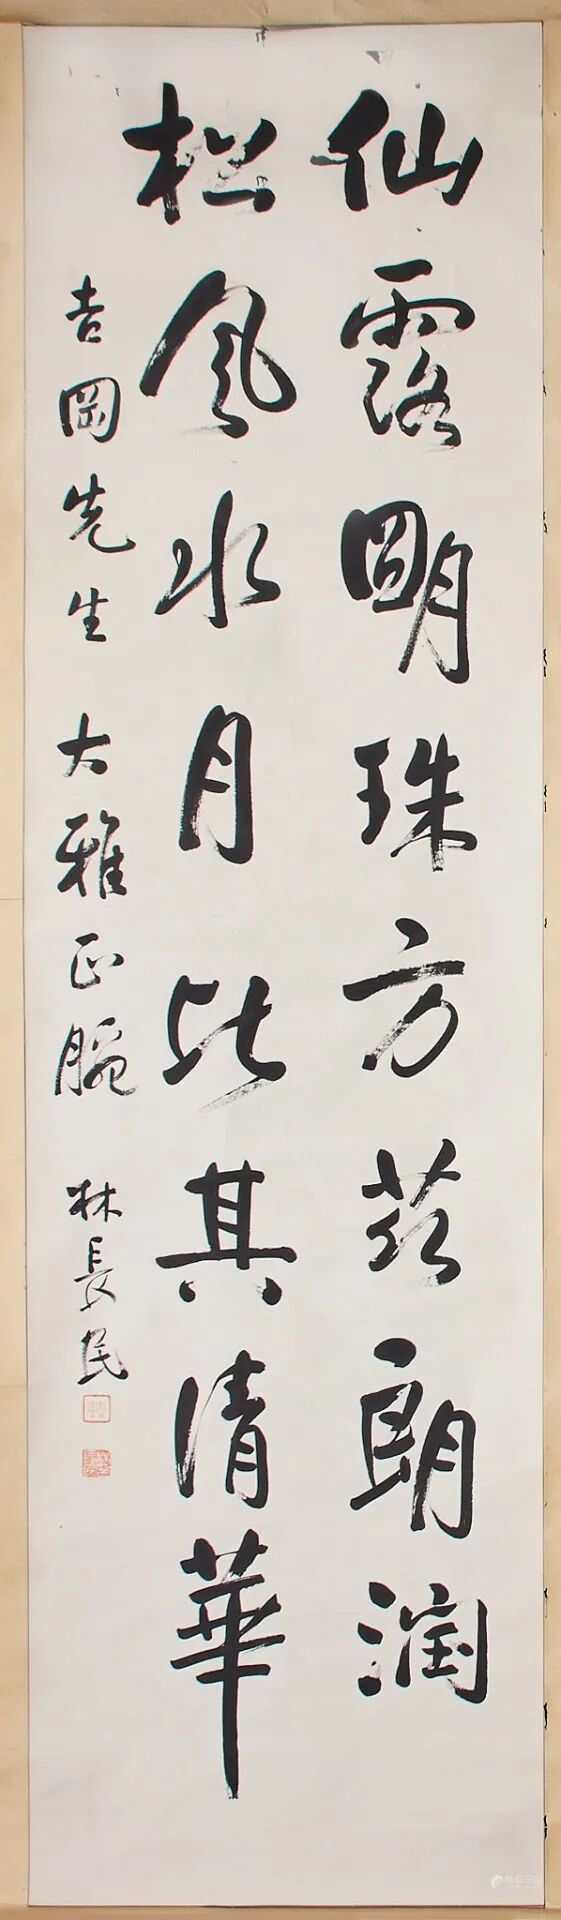 仙露明珠方茲朗潤
松風水月比其清華
吉岡先生 大雅正腕 林長民